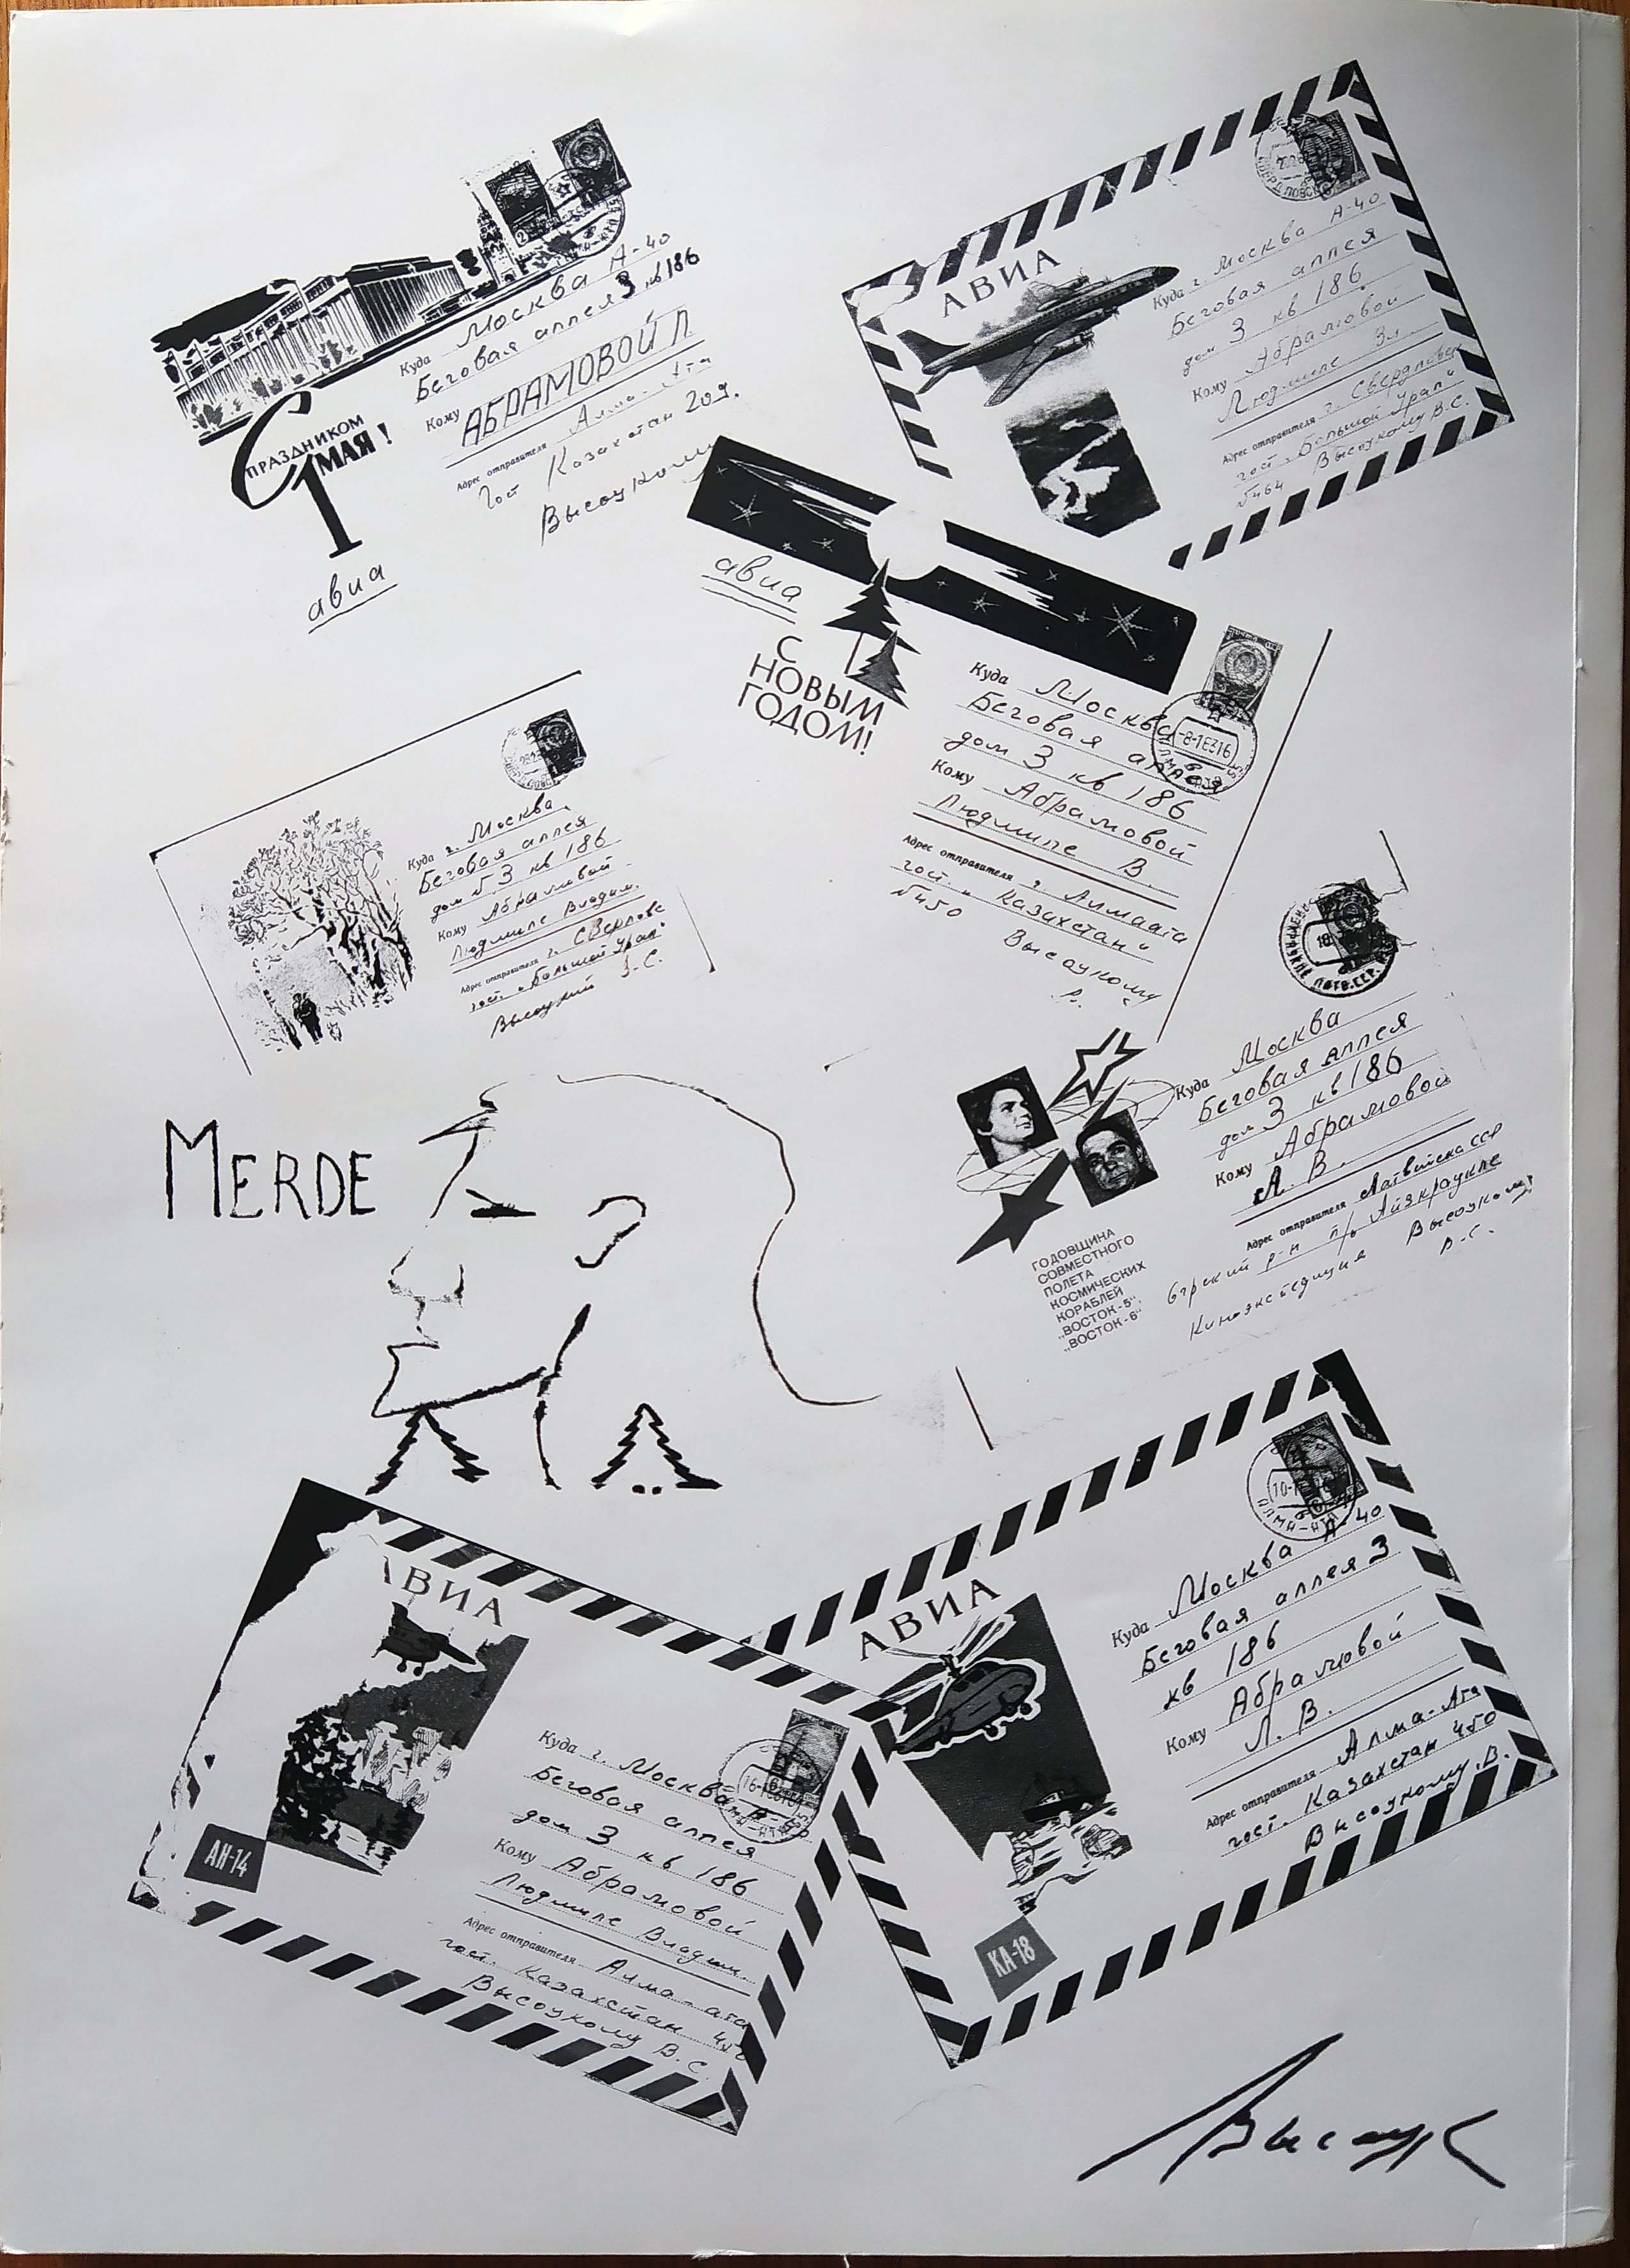 С ПРАЗДНИКОМ
1 МАЯ!
авиа
Куда Москва А-40
Беговая аллея 3 кв 186
Кому АБРАМОВОЙ Л
Адрес отправителя Алма-Ата
Гост Казахстан 209.
Высоцкому
АВИА
Куда г. Москва А-40
Беговая аллея
дом 3 кв 186
Кому Абрамовой
Людмиле Вл
Адрес отправителя г. Свердловск
гост. „Большой Урал"
Высоцкому В.С.
№464
авиа
С
НОВЫМ
ГОДОМ!
Куда Москва
Беговая аллея
дом 3 кв 186
Кому Абрамовой
Людмиле В.
Адрес отправителя г. Алмаата
гост. „Казахстан"
№450
Высоцкому
В.
Куда г. Москва
Беговая аллея
дом №3 кв 186
Кому Абрамовой
Людмиле Владим.
Адрес отправителя г. Свердловс
гост. „Большой Урал"
Высоцкий В.С.
АЙЗКРАУКЛЕ ЛАТВ.ССР
Куда Москва
Беговая аллея
дом 3 кв 186
Кому Абрамовой
Л. В.
Адрес отправителя Латвийска ССР
р-н п/о Айзкраукле
Киноэкспедиция Высоцкому
В.С.
ГОДОВЩИНА
СОВМЕСТНОГО
ПОЛЕТА
КОСМИЧЕСКИХ
КОРАБЛЕЙ
„ВОСТОК-5",
„ВОСТОК-6"
MERDE
АВИА
АН-14
Куда г. Москва
Беговая аллея
дом 3 кв 186
Кому Абрамовой
Людмиле Владим.
Адрес отправителя Алма-ата
гост. Казахстан 450
Высоцкому В.С.
АВИА
КА-18
АЛМА-АТА
Куда Москва А-40
Беговая аллея 3
кв 186
Кому Абрамовой
Л. В.
Адрес отправителя Алма-Ата
гост. Казахстан 450
Высоцкому.В.
Высоцк